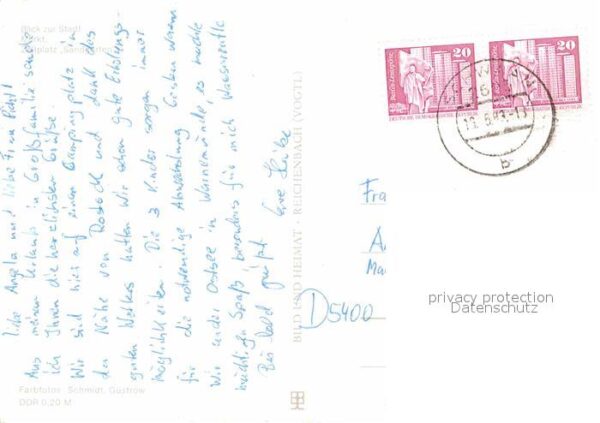 Blick zur Stadt
Markt
Zeltplatz „Sandgarten"
Liebe Angela und liebe Frau
Aus meinem Urlaub in Großfamilie sende
ich Ihnen die herzlichsten Grüße.
Wir sind hier auf einem Campingplatz in
der Nähe von Rostock und dank des
guten Wetters hatten wir schon gute Erholungs-
möglichkeiten. Die 3 Kinder sorgen immer
für die notwendige Abwechslung. Gestern waren
wir an der Ostsee in Warnemünde, es machte
mächtig Spaß besonders für mich
Bis bald grüßt Eve
Farbfotos: Schmidt, Güstrow
DDR 0,20 M
BILD UND HEIMAT · REICHENBACH (VOGTL)
Berlin-Leninplatz 20
DEUTSCHE DEMOKRATISCHE REPUBLIK
Berlin-Leninplatz 20
DEUTSCHE DEMOKRATISCHE REPUBLIK
b
Fra
A
Ma
D5400
privacy protection
Datenschutz